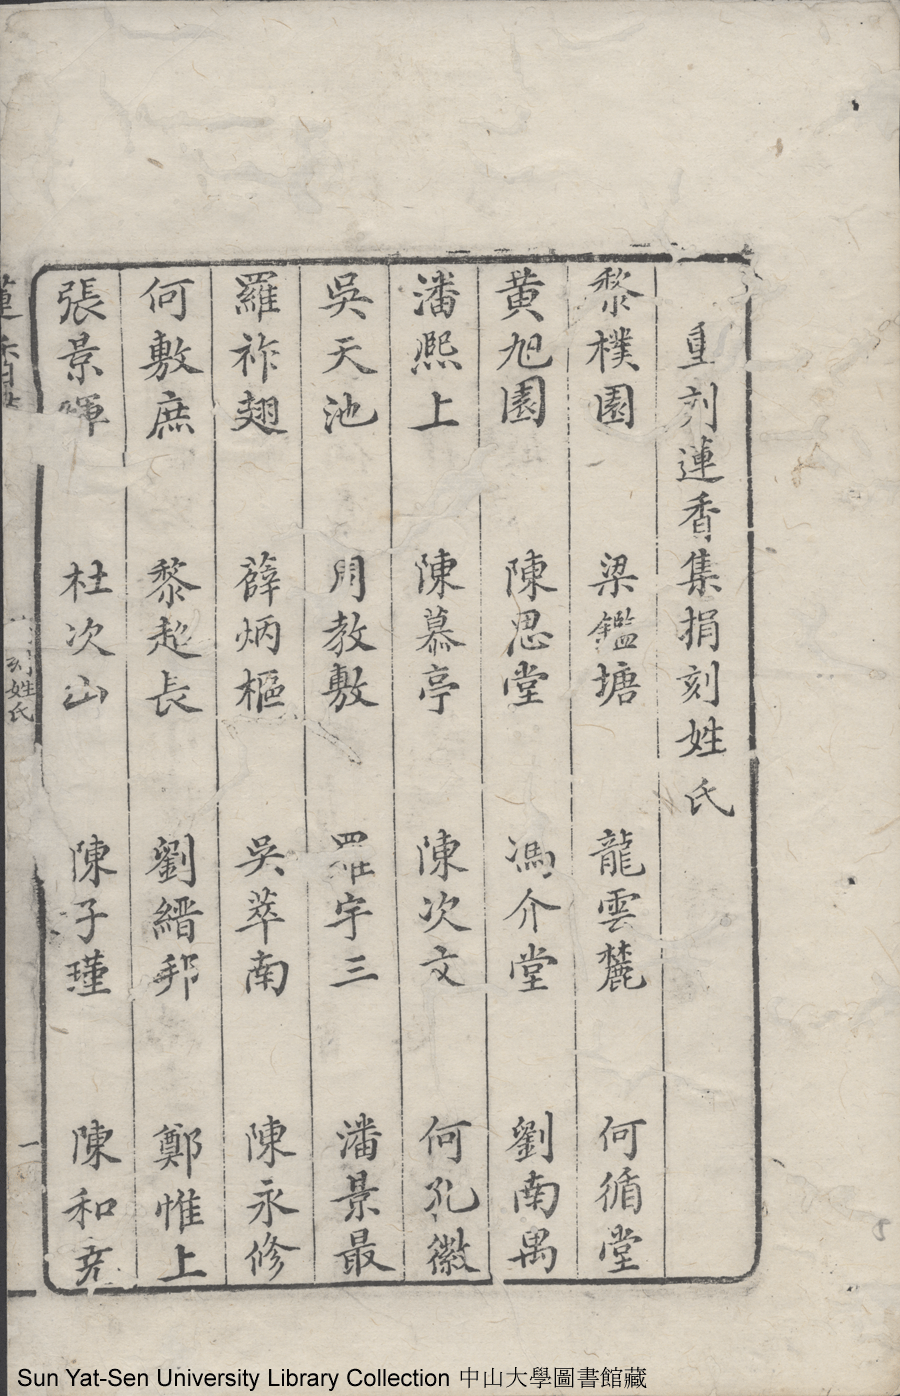 重刻蓮香集捐刻姓氏
黎樸園 梁鑑塘 龍雲麓 何循堂
黃旭園 陳思堂 馮介堂 劉南禺
潘熙上 陳慕亭 陳次文 何孔徽
吳天池 周教敷 羅宇三 潘景最
羅祚翅 薛炳樞 吳萃南 陳永修
何敷庶 黎起長 劉縉邦 鄭惟上
張景暉 杜次山 陳子瑾 陳和
刻姓氏
一
Sun Yat-Sen University Library Collection 中山大學圖書館藏